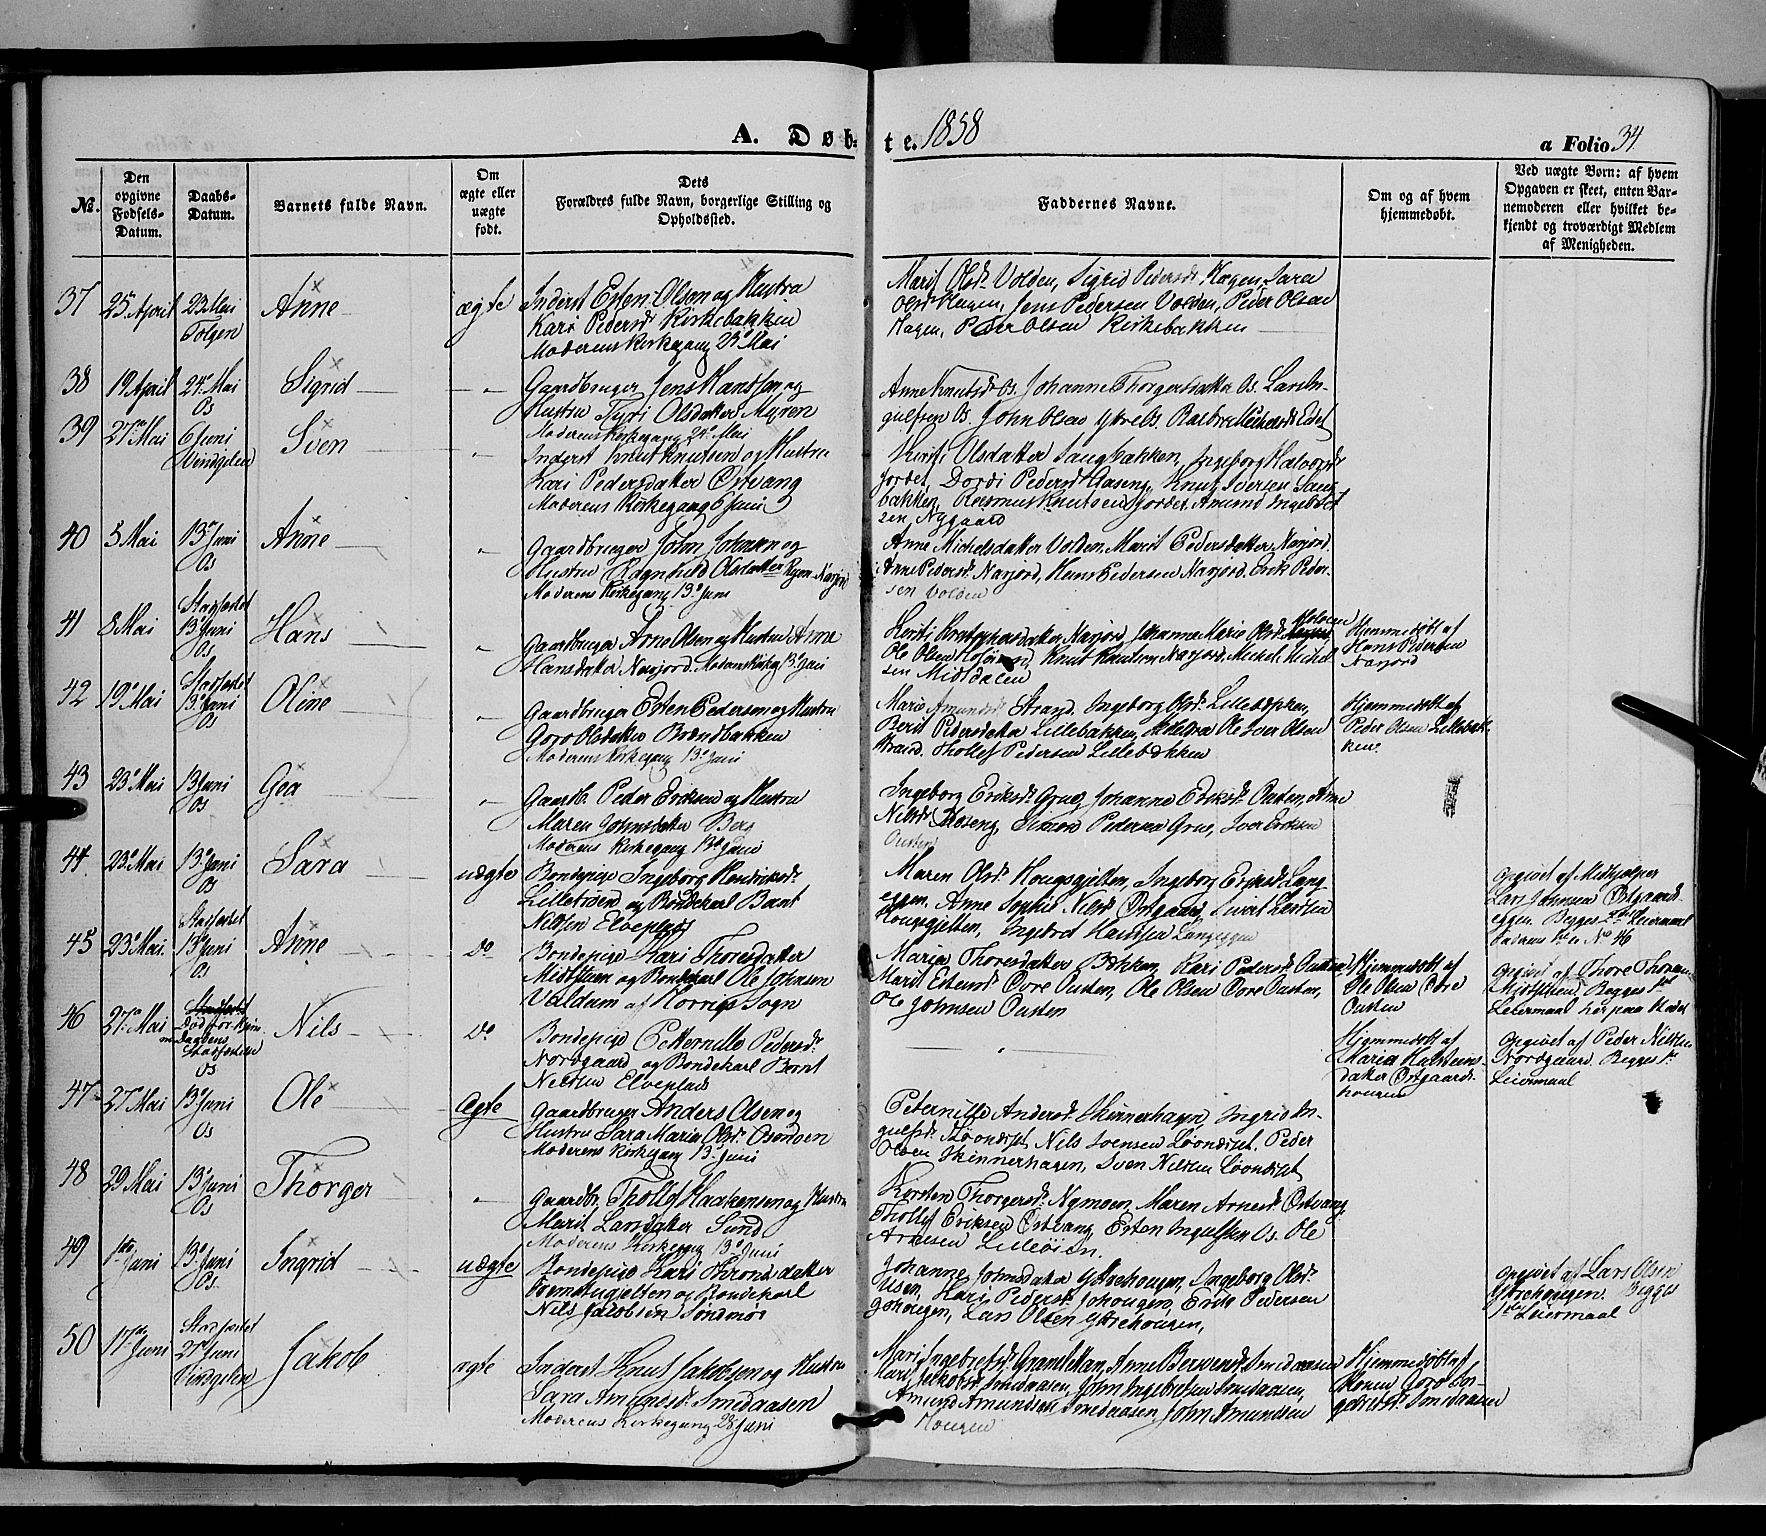 A. Døbte. 1858
a Folio 34
№.
Den opgivne Fødsels-Datum.
Daabs-Datum.
Barnets fulde Navn.
Om ægte eller uægte født.
Dets Forældres fulde Navn, borgerlige Stilling og Opholdssted.
Faddernes Navne.
Om og af hvem hjemmedøbt.
Ved uægte Børn: af hvem Opgaven er skeet, enten Barnemoderen eller hvilket bekjendt og troværdigt Medlem af Menigheden.
37 25 April 23 Mai Tolgen Anne ægte
Inderst Esten Olsen og Hustru
Kari Pedersdr Kirkebakken
Moderens Kirkegang 23 Mai
Marit Olsdr Volden, Sigrid Pedersdr Hagen, Sara
Olsdr Hagen, Jens Pedersen Volden, Peder Olsen
Hagen, Peder Olsen Kirkebakken
38 19 April 24 Mai Os Sigrid
Gaardbruger Jens Hansen og
Hustru Tyri Olsdatter Myren
Moderens Kirkegang 24 Mai
Anne Knutsdr Os. Johanne Thorgersdatter Os. Lars In-
gulfsen Os. John Olsen
39 27 Mai 6 Juni Vindgelen Sven
Inderst Knut Knutsen og Hustru
Kari Pedersdatter Østvang
Moderens Kirkegang 6 Juni
Kirsti Olsdatter Saugbakken, Ingeborg Halvorsdr
Jordet, Dordi Pedersdr Aaseng, Knut Iversen Saug-
bakken, Rasmus Knutsen Jordet, Amund Ingebret-
sen Nygaard
40 5 Mai 13 Juni Os Anne
Gaardbruger John Johnsen og
Hustru Ragnhild Olsdatter Ryen Narjord
Moderens Kirkegang 13 Juni
Anne Michelsdatter Volden, Marit Pedersdatter Narjord
Anne Pedersdr Narjord, Hans Pedersen Narjord. Erik Peder-
sen Volden
41 8 Mai Stadfæstet 13 Juni Os Hans
Gaardbruger Arne Olsen og Hustru Anne
Hansdatter Narjord. Moderens Kirkeg 13 Juni
Kersti Narjord, Johanne Marie Olsdr
Ole Olsen, Knut Knutsen Narjord, Michel Michel-
sen Midtdalen
Hjemmedøbt af
Hans Pedersen
Narjord
42 19 Mai Stadfæstet 13 Juni Os Oline
Gaardbruger Esten Pedersen og Hustru
Goro Olsdatter Brændbakken
Moderens Kirkegang 13 Juni
Marie Amundsdr Strand, Ingeborg Olsdr Lillebakken,
Berit Pedersdatter Lillebakken, Ole Iver Olsen
Strand. Thollef Pedersen Lillebækken
Hjemmedøbt af
Peder Olsen Lillebak-
ken.
43 23 Mai 13 Juni Os Gea
Gaardb. Peder Eriksen og Hustru
Maren Johnsdatter Berg
Moderens Kirkegang 13 Juni
Ingeborg Eriksdr Grue, Johanne Eriksdr Ousten, Anne
Nilsdr Moseng, Simon Pedersen Grue, Iver Eriksen
Ousten
44 23 Mai 13 Juni Os Sara uægte
Bondepige Ingeborg Hendriksdr
Lillebrød og Bondekarl Bernt
Nilsen Elveplads
Maren Olsdr Hougsgjelten, Ingeborg Eriksdr Lang-
eggen, Anne Sophie Nilsdr Østgaard, Sivert Larsen
Hougsgjelten, Ingebret Hansen Langeggen
opgivet af Medhjælper
Lars Johnsen Østgaards-
eggen. Begges Leiermaal
No 46
45 23 Mai Stadfæstet 13 Juni Os Anne Do
Bondepige Kari Thoresdatter
Midtstuen og Bondekarl Ole Johnsen
Valdum af Horrigs Sogn
Maria Thoresdatter Bakken, Kari Pedersdr Ousten
Marit Estensdr Øvre Ousten, Ole Olsen Øvre Ousten,
Ole Johnsen Ousten
Hjemmedøbt af
Ole Olsen Øvre
Ousten
opgivet af Thore Thoresen
Midtstuen, Begges 1ste
Leiermaal
46 27 Mai Død for Hjem-
medaabens
Stadfæstelse Os Nils Do
Bondepige Petternille Pedersdr
Nordgaard og Bondekarl Bernt
Nilsen Elveplads
Hjemmedøbt af
Maria Halstens-
datter Østgaards-
hougen
opgivet af Peder Nilsen
Nordgaard. Begges 1ste
Leiermaal
47 27 Mai 13 Juni Os Ole Ægte
Gaardbruger Anders Olsen og
Hustru Sara Maria Olsdr Osmoen
Moderens Kirkegang 13 Juni
Peternille Andersdr Skinnerhagen, Ingrid In-
gulfsdr, Nils Svensen, Peder
Olsen Skinnerhagen, Sven Nilsen
48 29 Mai 13 Juni Os Thorger
Gaardbr. Thollef Haakensen og Hustru
Marit Larsdatter Sund
Moderens Kirkegang 13 Juni
Kersten Thorgersdr Nymoen, Maren Arnesdr Østvang
Thollef Eriksen Østvang, Esten Ingulfsen Os. Ole
Arnesen Lilleøien.
49 1ste Juni 13 Juni Os Ingrid uægte
Bondepige Kari Thronsdatter
og Bondekarl
Nils Jacobsen Søndmør
Johanne Johnsdatter Yttrehougen, Ingeborg Olsdr
Kari Pedersdr Johougen, Erik Pedersen
Johougen, Lars Olsen Yttrehougen,
opgivet af Lars Olsen
Yttrehougen. Begges
1ste Leiermaal
50 17de Juni Stadfæstet 27 Juni Vindgelen Jakob ægte
Inderst Knut Jakobsen og Hustru
Sara Amundsdr Smedaasen
Moderens Kirkegang 28 Juni
Mari Ingebretsdr, Anne Smedaasen
Mari Jakobsdr Smedaasen, John Ingebretsen Smedaasen,
Amund Amundsen Smedaasen, John Amundsen
Hougen
Hjemmedøbt af
Konen Goro In-
gebretsdr Smedaasen